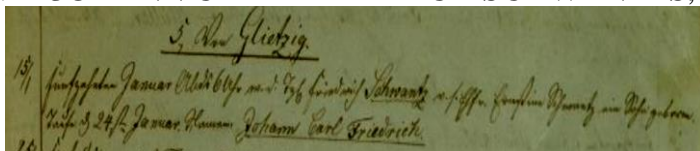 5, Von Glietzig.
15/1 fünfzehnten Januar Abds 6 Uhr w. d. Friedrich Schwantz u. s. Ehfr. Ernstine Schwantz ein Sohn geboren.
Taufe d 24st Januar. Namen: Johann Carl Friedrich.